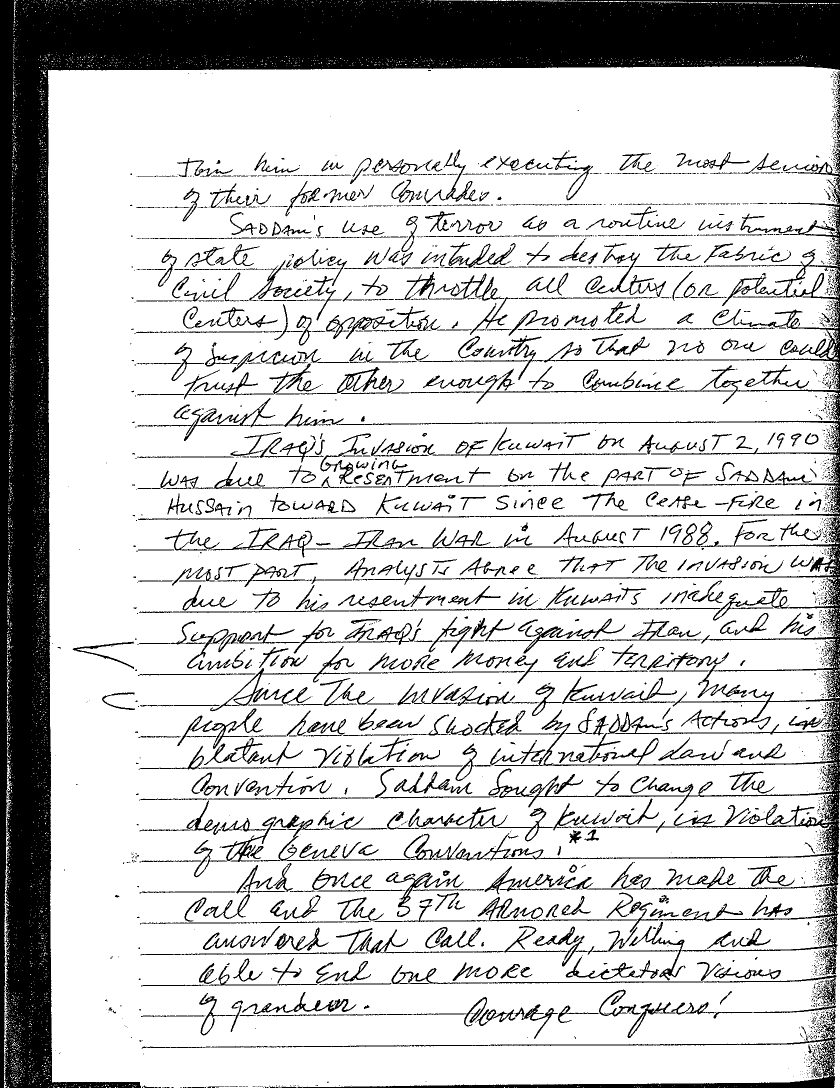 Join him in personally executing the most senior
of their former Comrades.
SADDAM's use of terror as a routine instrument
of state policy was intended to destroy the Fabric of
Civil Society, to throttle, all Centers (or potential
Centers) of opposition. He promoted a Climate
of Suspicion in the Country so that no one could
trust the other enough to combine together
against him.
IRAQ'S INVASION OF KUWAIT ON AUGUST 2, 1990
Growing
WAS due TO RESENTMENT on the PART OF SADDAM
HUSSAIN TOWARD KUWAIT SINCE THE CEASE-FIRE in
the IRAQ-IRAN WAR in AUGUST 1988. FOR the
MOST PART, ANALYSTS AGREE THAT THE INVASION WAS
due to his resentment in KUWAIT'S inadequate
Support for IRAQ'S fight against Iran, and his
ambition for more money and TERRITORY.
Since The Invasion of Kuwait, many
people have been shocked by SADDAM's Actions, in
blatant violation of international Law and
Convention. Saddam Sought to Change the
demographic character of Kuwait, in Violation
of the Geneva Conventions. *1
And Once again America has made the
Call and The 37TH ARMORED Regiment has
answered That Call. Ready, Willing and
able to End one more dictators Visions
of grandeur. Courage Conquers!